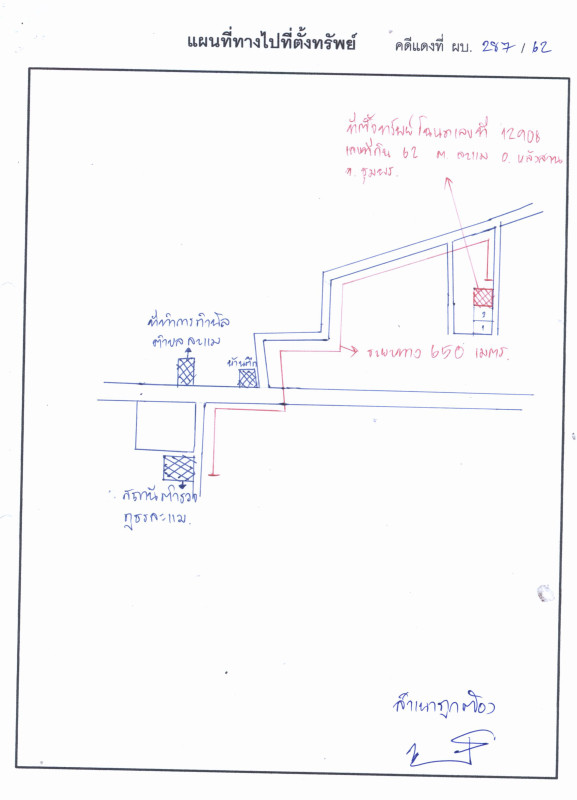 แผนที่ทางไปที่ตั้งทรัพย์ คดีแดงที่ ผบ. 287/62
ที่ตั้งทรัพย์ โฉนดเลขที่ 12908
เลขที่ดิน 62 ต. ละแม อ. หลังสวน
จ. ชุมพร.
ที่ทำการกำนัล
ตำบลละแม
บ้านตึก
ระยะทาง 650 เมตร.
สถานีตำรวจ
ภูธรละแม.
สำเนาถูกต้อง